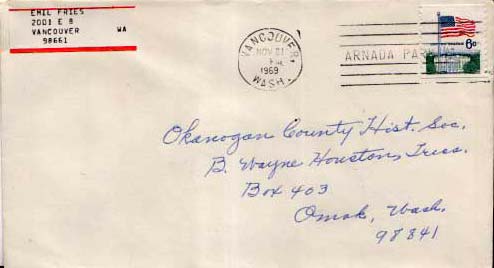 EMIL FRIES
2001 E 8
VANCOUVER WA
98661
VANCOUVER,
NOV 21
PM
1969
WASH.
ARNADA PA
6c
Okanogan County Hist. Soc.
B. Wayne Houston, Treas.
Box 403
Omak, Wash.
98841